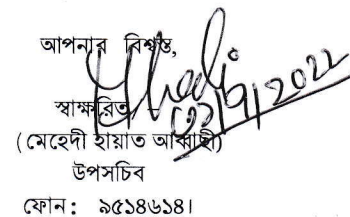 আপনার বিশ্বস্ত,
স্বাক্ষরিত
(মেহেদী হায়াত আব্বাছী)
উপসচিব
ফোন: ৯৫১৪৬১৪।